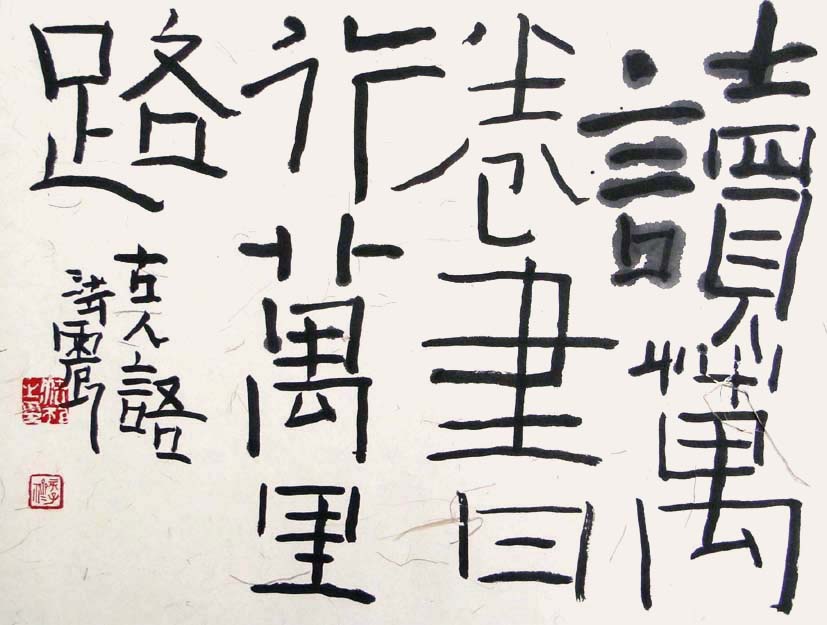 讀萬
卷書
行萬里
路
古人語